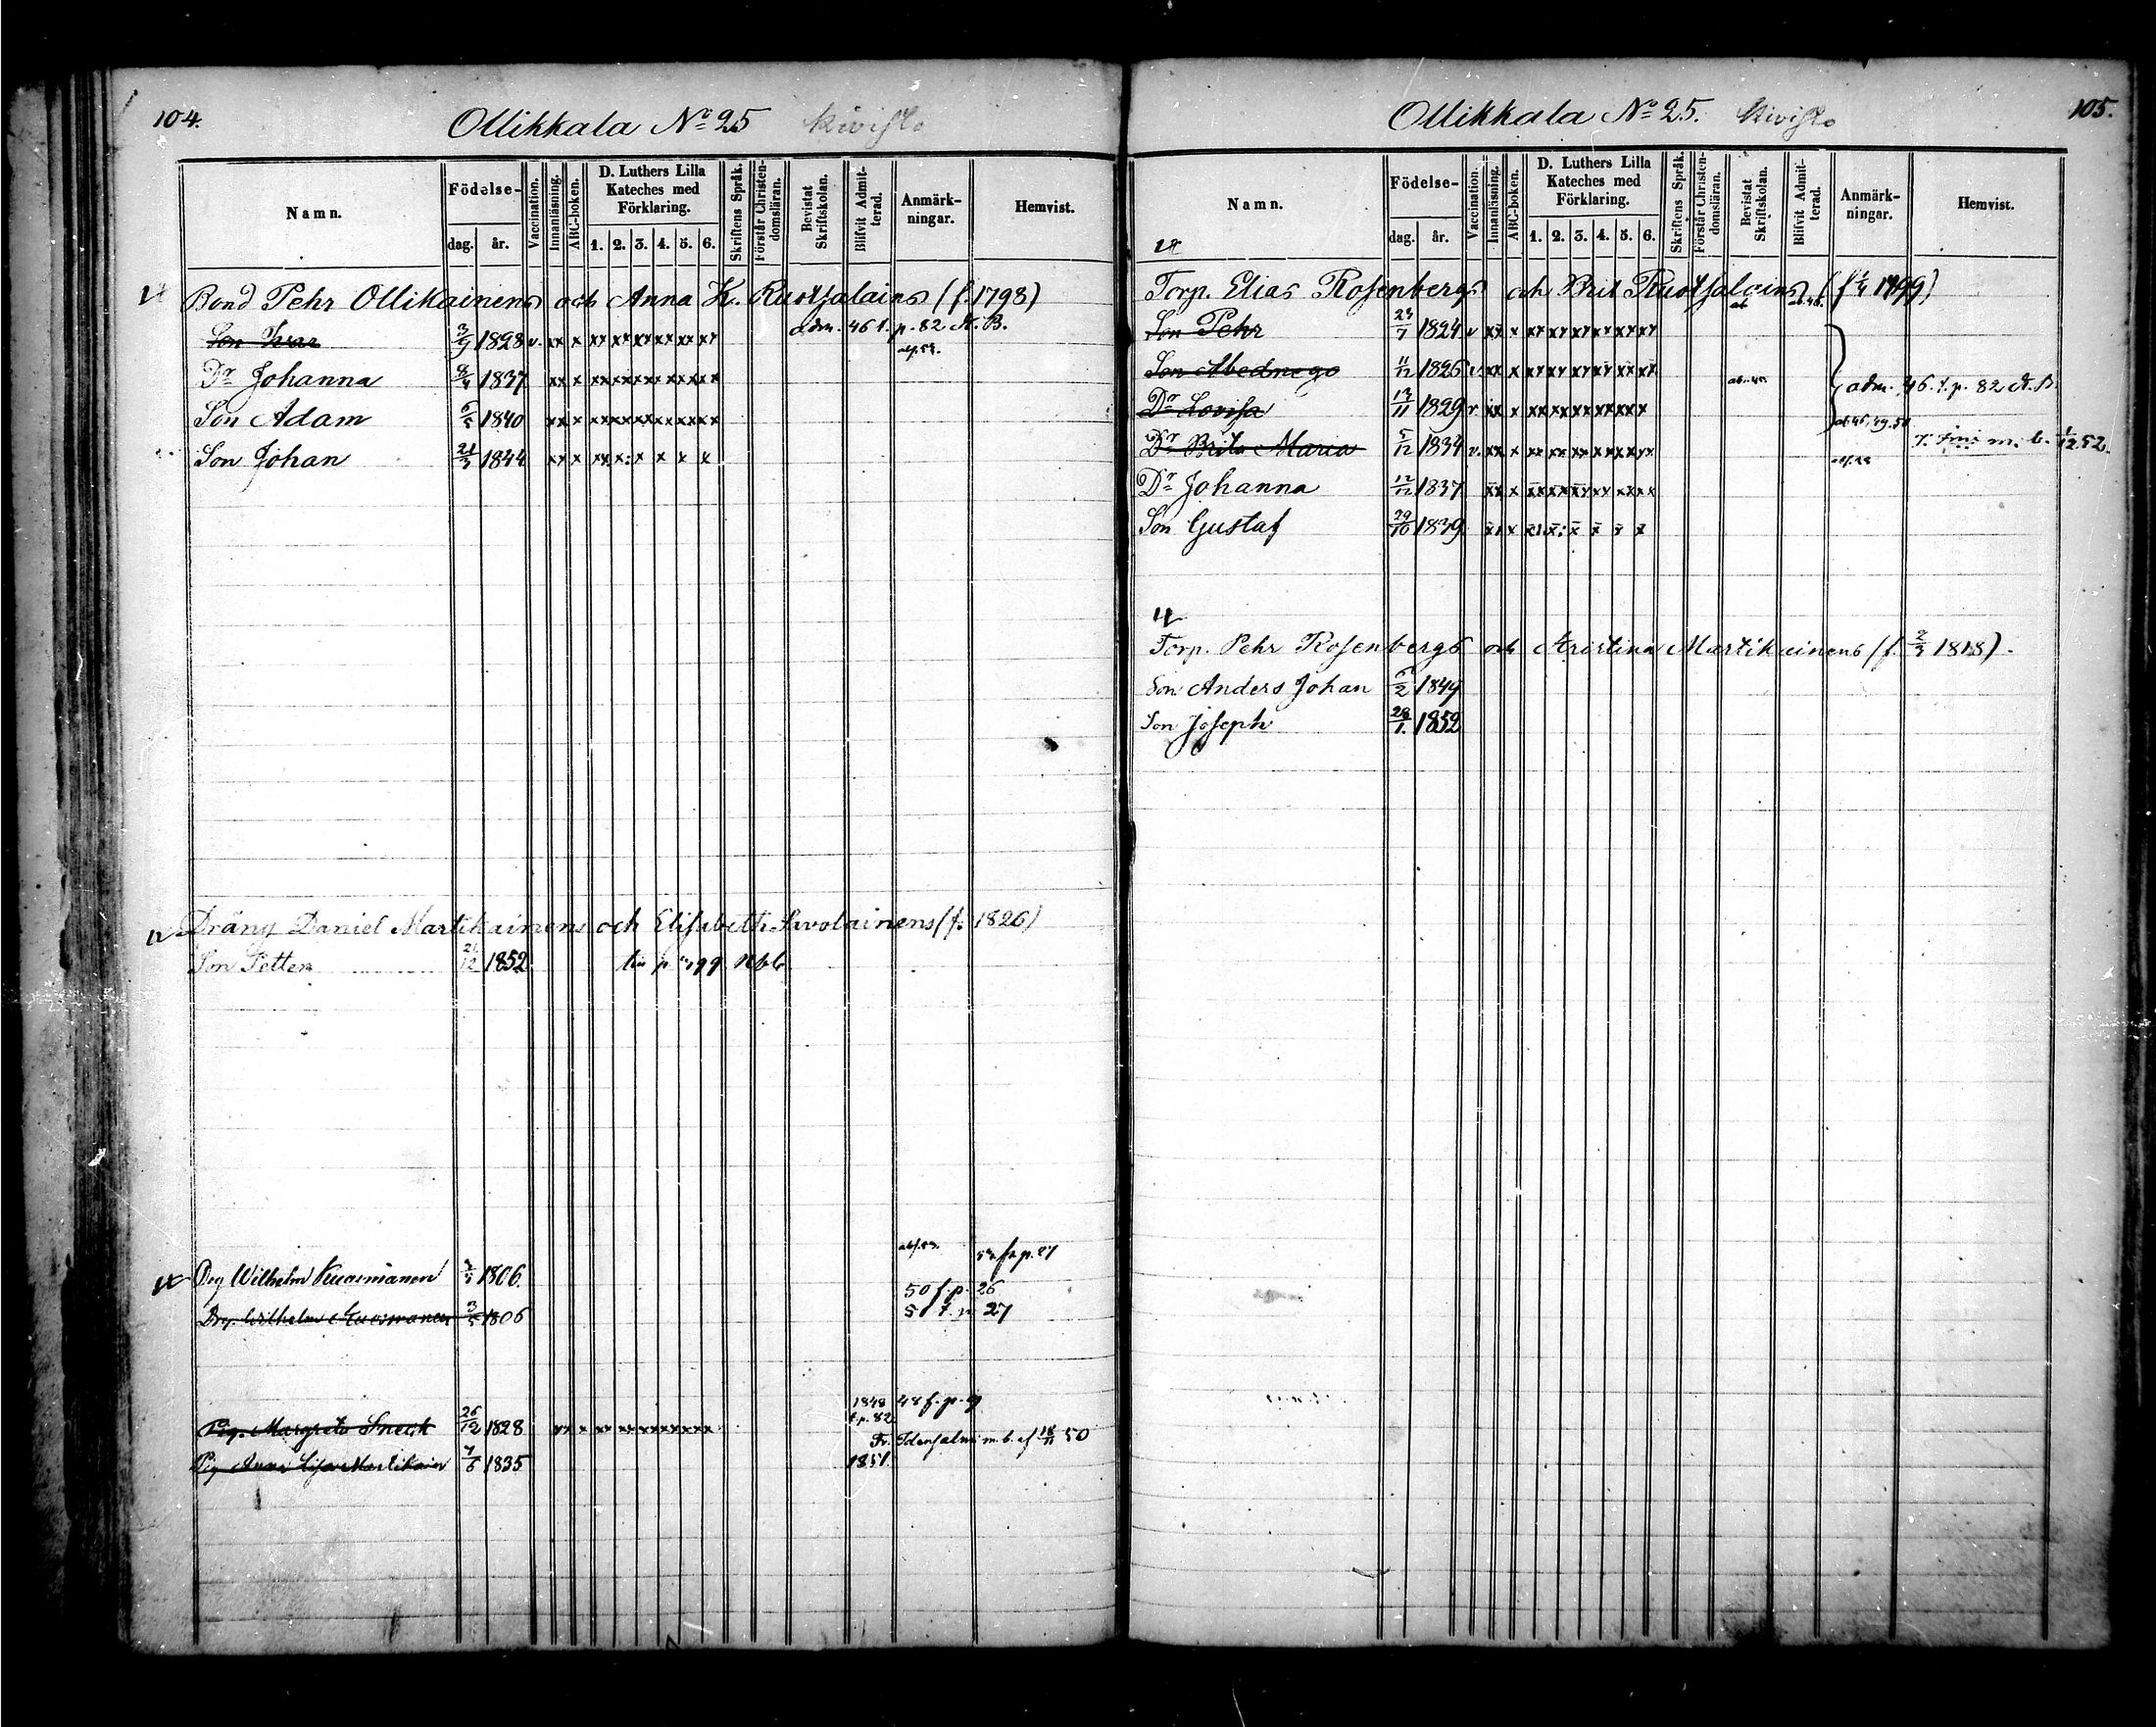 104.
Ollikkala No 25 Kivisto
Namn. Födelse- dag. år. Vaccination. Innanläsning. ABC-boken. D. Luthers Lilla Kateches med Förklaring. 1. 2. 3. 4. 5. 6. Skriftens Språk. Förstår Christendomsläran. Bevistat Skriftskolan. Blifvit Admitterad. Anmärkningar. Hemvist.
Bond Pehr Ollikainens och Anna K. Ruotsalains (f. 1798)
Son 3/9 1828 v. xx x xx xx xx xx xx xx adm. 46 f. p. 82 N. B.
Dr Johanna 8/4 1837 xx x xx xx xx xx xx xx
Son Adam 6/5 1840 xx x xx xx xx xx xx xx
Son Johan 21/3 1844 xx x xx x: x x x x
Dräng Daniel Martikainens och Elisabeth Savolainens (f. 1826)
Son Petter 1852
Drg Wilhelm Kuosmanen 3/5 1806. 53 fr p. 27
50 f. p. 26
Drg. Wilhelm Kuosmanen 3/5 1806 51 f. p. 27
1848 48 f. p. 9
t. p. 82
Pig. Margreta Sneck 26/12 1828 xx x xx xx xx xx xx xx
Fr. Idensalmi m. b. af 18/11 50
Pig Anna Lisa Martikain 7/6 1835 1851.
105.
Ollikkala No 25. Kivisto
Namn. Födelse- dag. år. Vaccination. Innanläsning. ABC-boken. D. Luthers Lilla Kateches med Förklaring. 1. 2. 3. 4. 5. 6. Skriftens Språk. Förstår Christendomsläran. Bevistat Skriftskolan. Blifvit Admitterad. Anmärkningar. Hemvist.
Torp. Elias Rosenbergs och Brit Ruotsalains (f 1799)
Son Pehr 23/7 1824 v xx x xx xx xx xx xx xx
Son Abednego 11/12 1826 v. xx x xx xx xx xx xx xx
adm. 46. f. p. 82 N. B.
Dr Lovisa 13/11 1829 v. xx x xx xx xx xx xx x
Dr Brita Maria 5/12 1834 v. xx x xx xx xx xx xx xx m. b. 1/12 52.
Dr Johanna 12/12 1837 xx x xx xx xx xx xx xx
Son Gustaf 29/10 1839 xx x xx x: x x x x
Torp. Pehr Rosenbergs och Kristina Martikainens (f. 2/3 1818).
Son Anders Johan 6/2 1849
Son Joseph 28/1. 1852